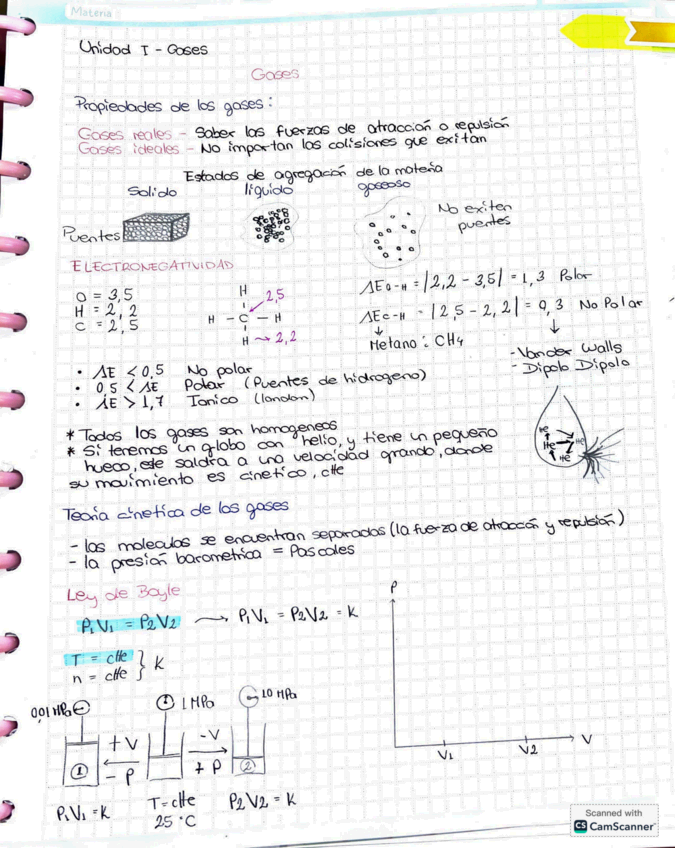 Materia:
Unidad I - Gases
Gases
Propiedades de los gases:
Gases reales - Saber las fuerzas de atracción o repulsión
Gases ideales - No importan las colisiones que exitan
Estados de agregación de la materia
Solido líquido gaseoso
Puentes
No exiten
puentes
ELECTRONEGATIVIDAD
O = 3,5
H = 2,2
C = 2,5
H
2,5
H - C - H
H → 2,2
ΔE O-H = |2,2 - 3,5| = 1,3 Polar
ΔE C-H = |2,5 - 2,2| = 0,3 No Polar
Metano: CH4
- Vander Walls
- Dipolo Dipolo
• ΔE < 0,5 No polar
• 0,5 < ΔE Polar (Puentes de hidrogeno)
• ΔE > 1,7 Ionico (london)
* Todos los gases son homogeneos
* Si tenemos un globo con helio, y tiene un pequeño
hueco, este saldra a una velocidad grande, donde
su movimiento es cinetico, ctte
He
He He
He
Teoria cinetica de los gases
- las moleculas se encuentran separadas (la fuerza de atracción y repulsión)
- la presión barometrica = Pascales
Ley de Boyle
P1V1 = P2V2 → P1V1 = P2V2 = K
T = ctte
n = ctte } K
0,01 MPa
1 MPa
10 MPa
+V
- P
-V
+ P
1
2
P1V1 = K
T = ctte
25 °C
P2V2 = K
P
V1 V2 V
Scanned with
CS CamScanner